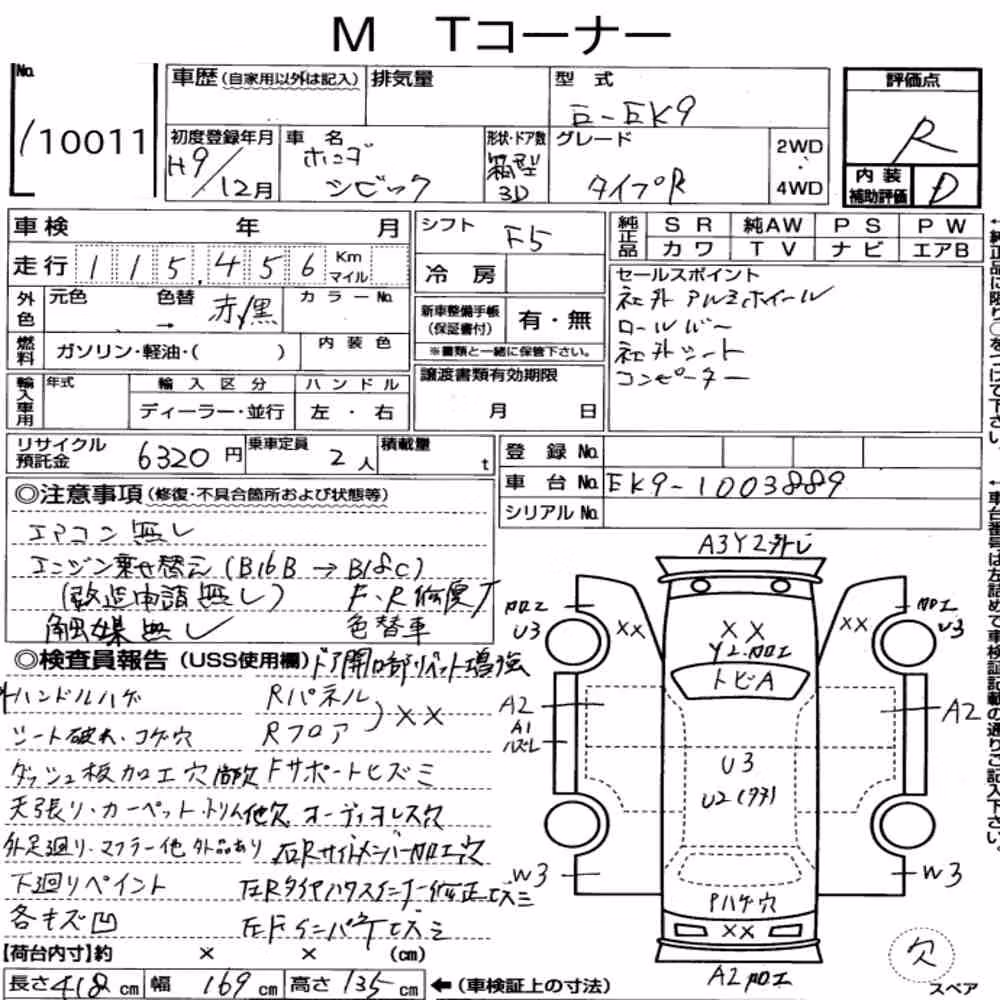 M Tコーナー
No.
10011
車歴(自家用以外は記入)
排気量
型式
E-EK9
評価点
R
初度登録年月
H9/12月
車名
ホンダ
シビック
形状・ドア数
箱型
3D
グレード
タイプR
2WD
・
4WD
内装
補助評価
D
車検 年 月
シフト
F5
純正品
SR 純AW PS PW
カワ TV ナビ エアB
走行 115,456 Km マイル
冷房
セールスポイント
社外アルミホイール
ロールバー
社外シート
コンピーター
外色
元色 色替
→ 赤/黒
カラーNo.
新車整備手帳
(保証書付)
有・無
※書類と一緒に保管下さい。
燃料
ガソリン・軽油・( )
内装色
輸入車用
年式
輸入区分
ディーラー・並行
ハンドル
左・右
譲渡書類有効期限
月 日
リサイクル
預託金
6320円
乗車定員
2人
積載量
t
登録No.
車台No. EK9-1003889
シリアルNo.
◎注意事項(修復・不具合箇所および状態等)
エアコン無し
エンジン乗せ替え(B16B → B18C)
(改造申請無し) F、R修復了
触媒無し 色替車
◎検査員報告(USS使用欄)ドア開口部リベット増強
ハンドルハゲ Rパネル
シート破れ、コゲ穴 Rフロア ) ××
ダッシュ板加工穴 Fサポートヒズミ
天張り・カーペット・トリム他欠 オーディオレス穴
外足廻り・マフラー他 外品あり 左Rサイドメンバー加工穴
下廻りペイント 左RタイヤハウスインナーXX修正ヒズミ
各キズ凹
【荷台内寸】約 × × (cm)
長さ418cm 幅169cm 高さ135cm ←(車検証上の寸法)
A3Y2外し
加工
U3
××
××
Y2.加工
××
加工
U3
トビA
A2
A1
A2
U3
U2(タタミ)
W3
W3
Pハゲ穴
××
A2加工
欠
スペア
←純正品に限り○をつけて下さい。
←車台番号は左詰めで車検証記載の通りご記入下さい。